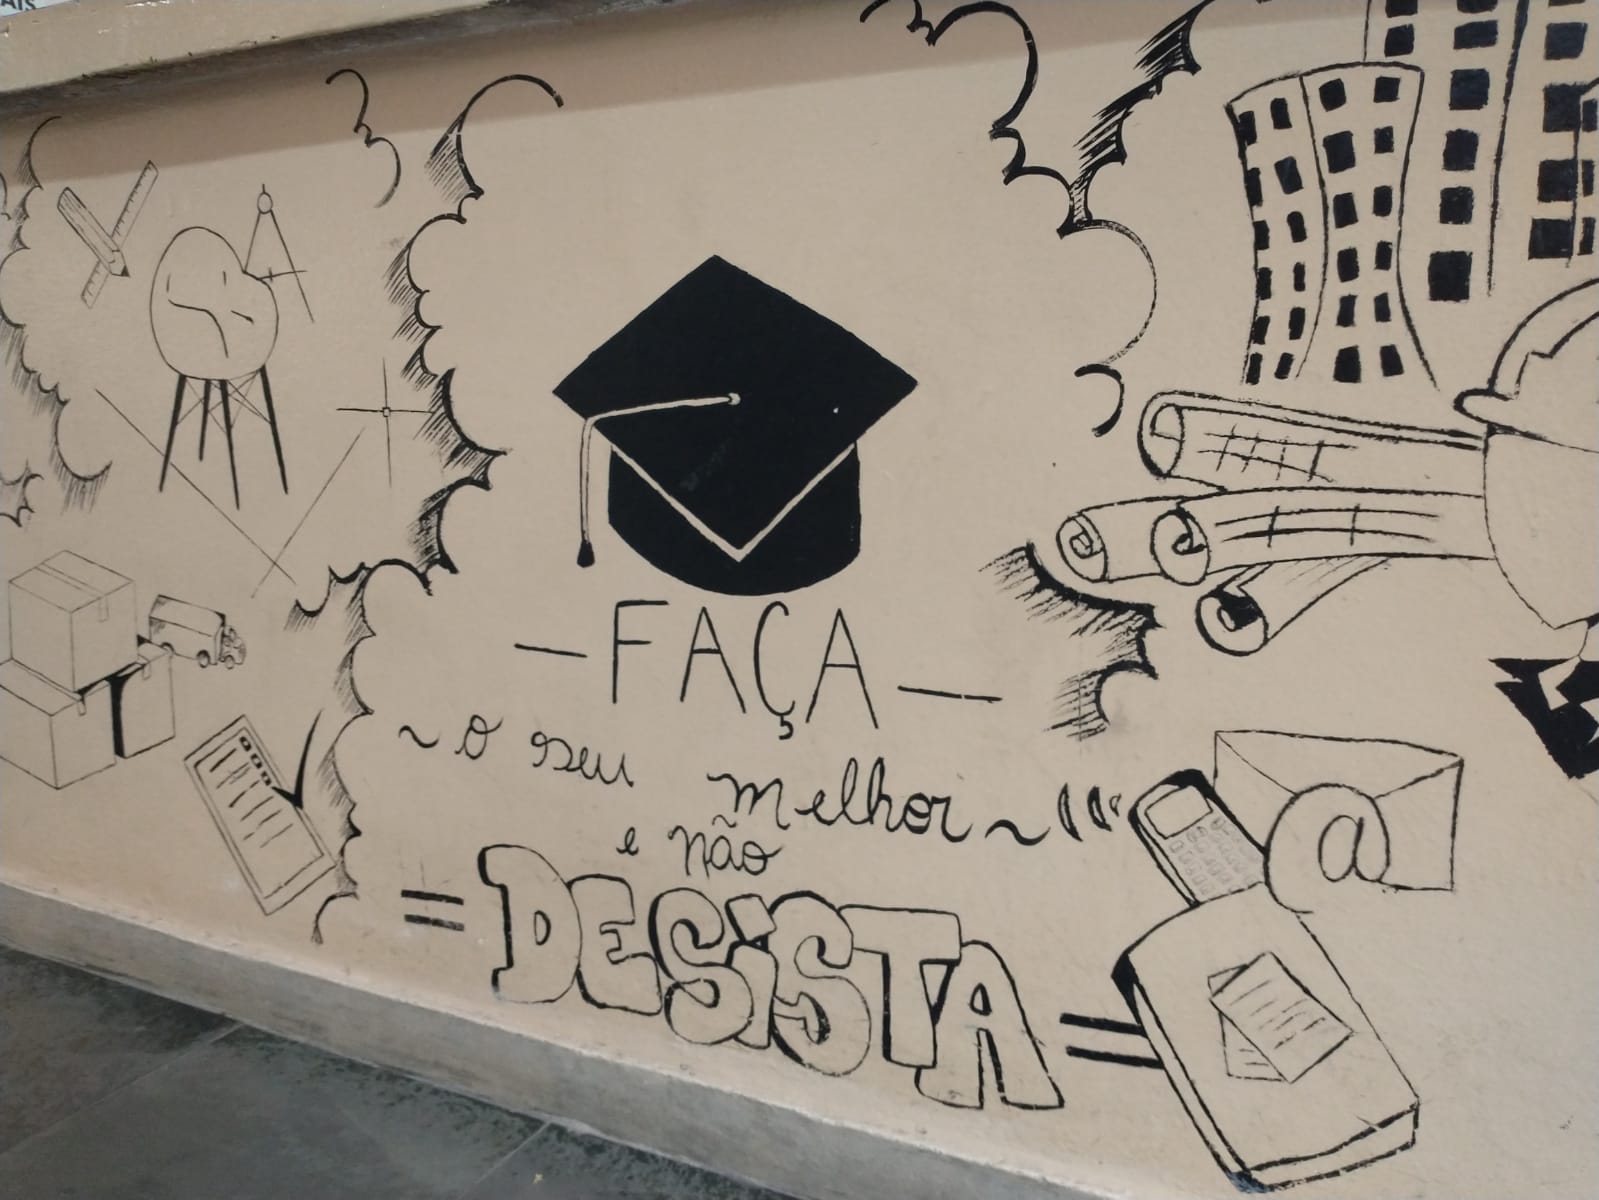 AIS
FAÇA
o seu melhor
e não
DESISTA
@